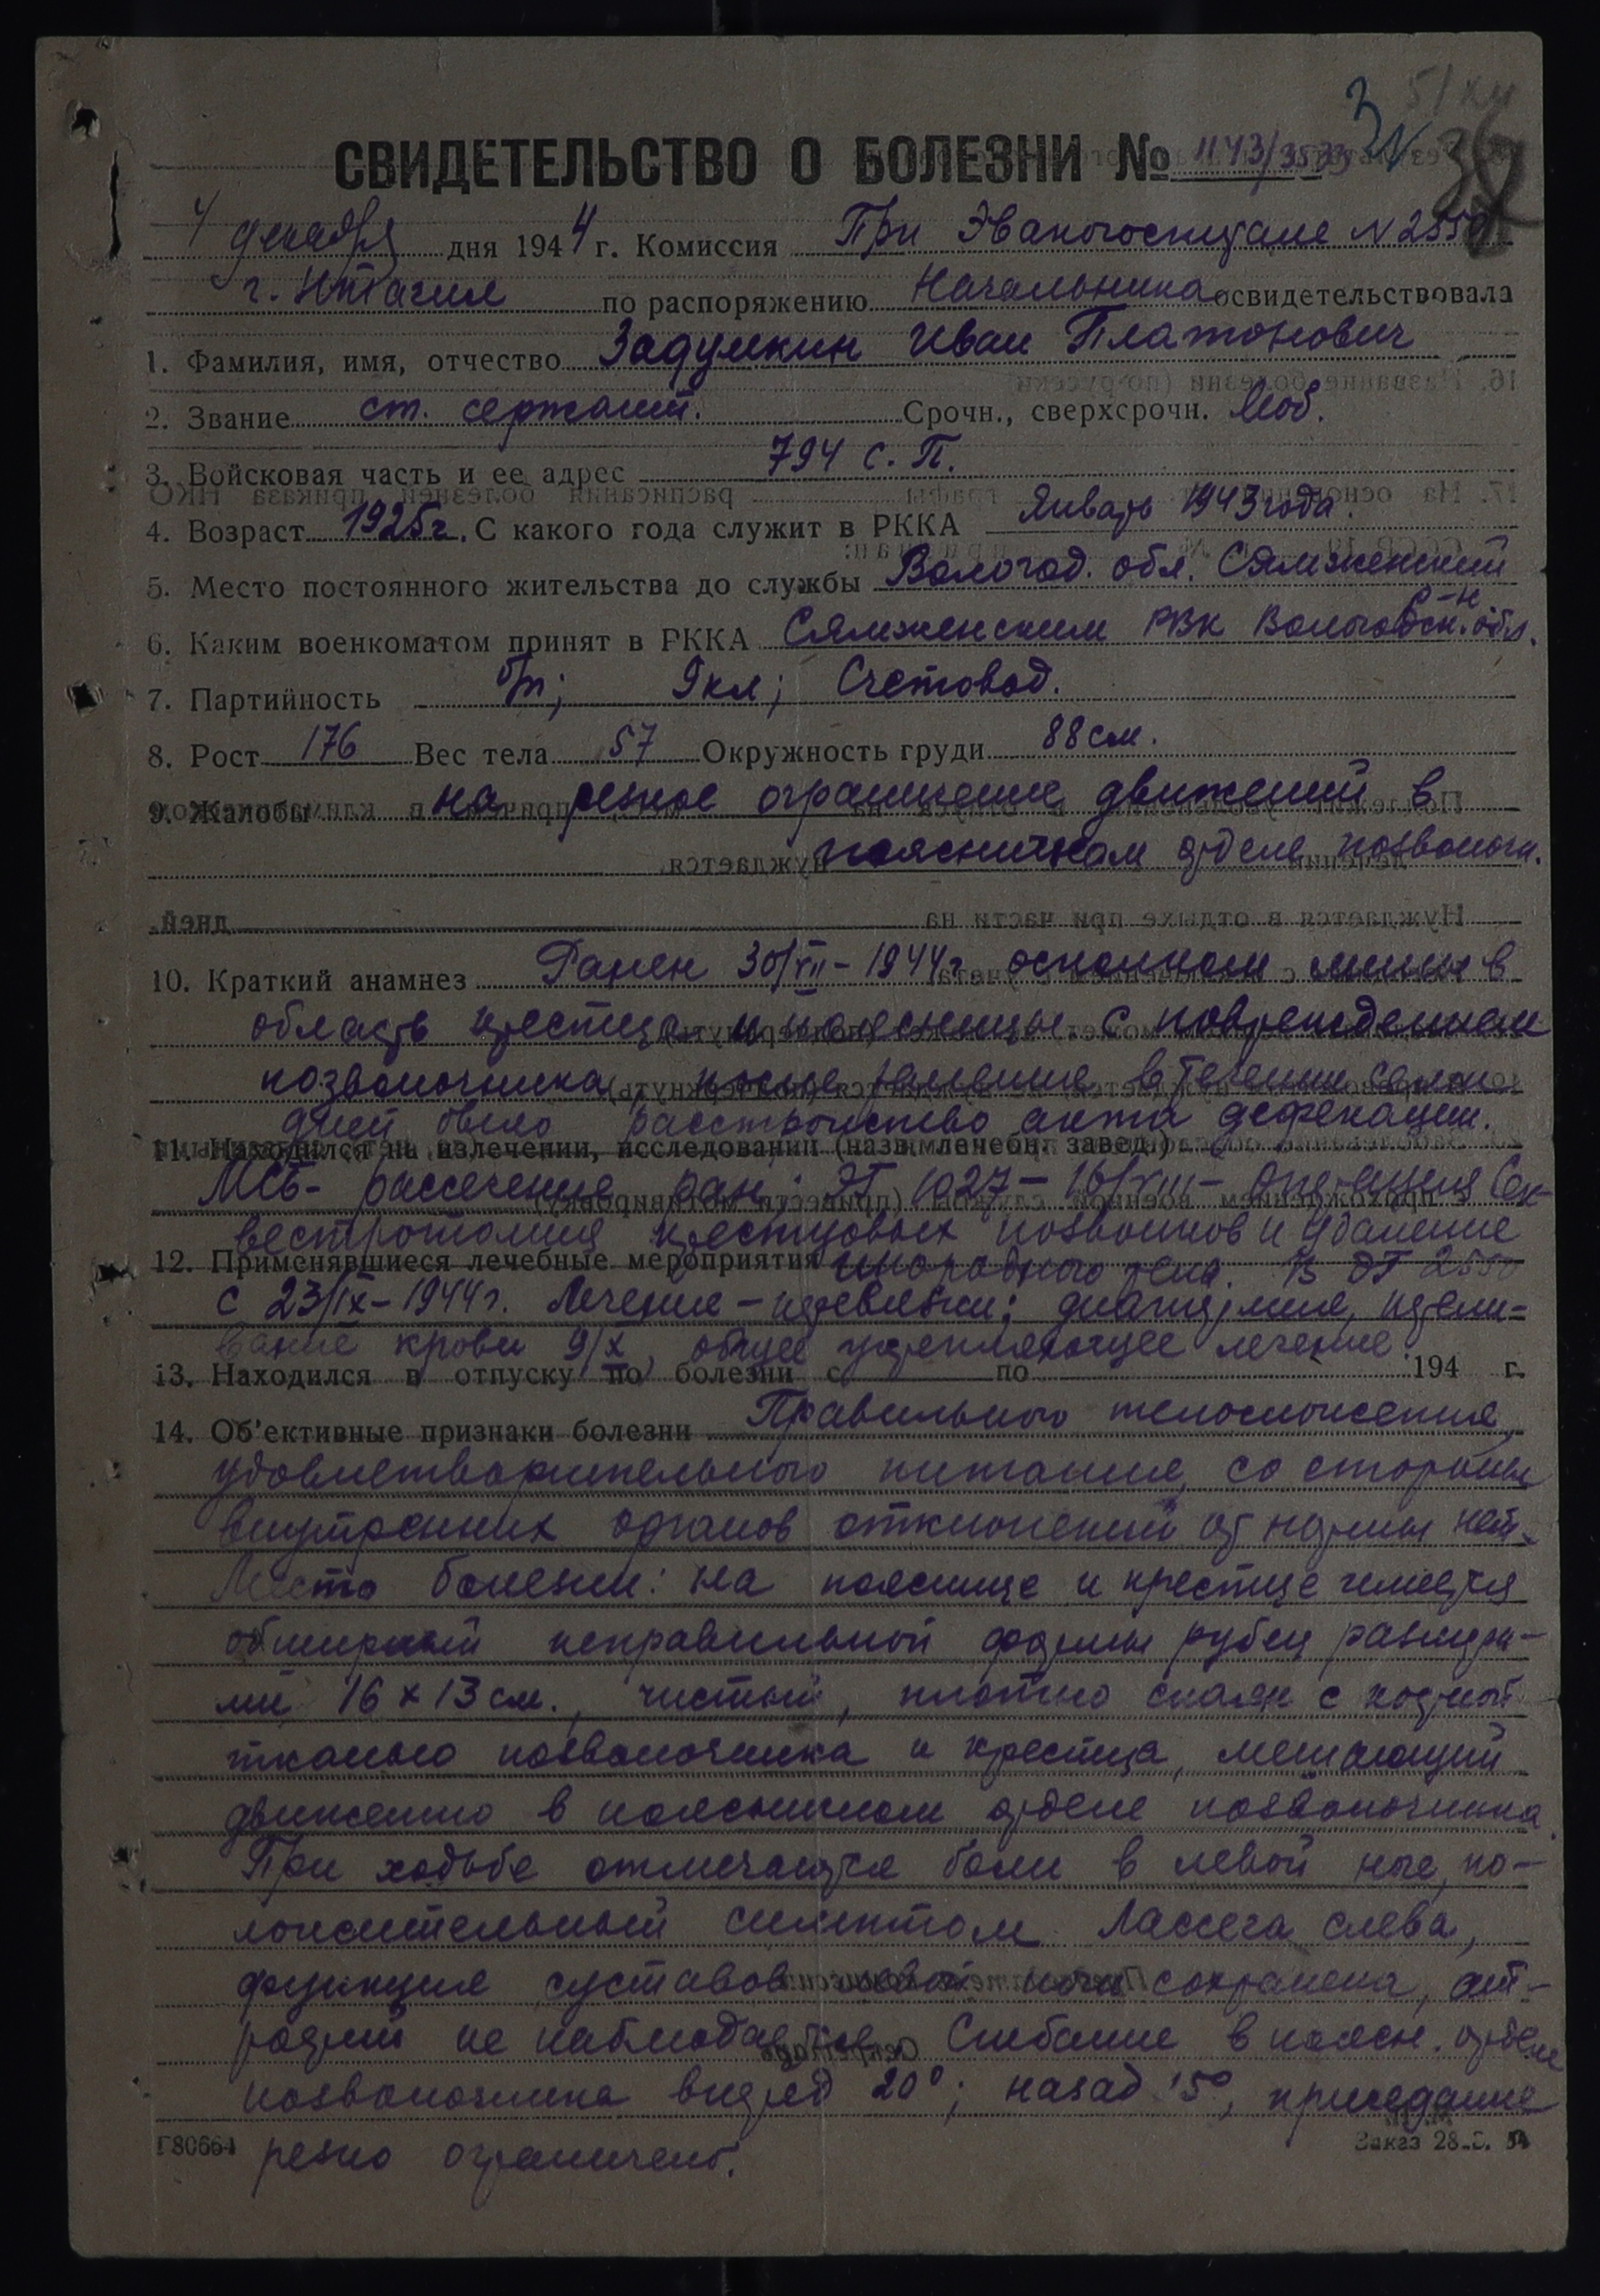 СВИДЕТЕЛЬСТВО О БОЛЕЗНИ № 1143/3533
4 декабря дня 1944 г. Комиссия При Эвакогоспитале N 2550
г. Н-Тагил по распоряжению Начальника освидетельствовала
1. Фамилия, имя, отчество Задумкин Иван Платонович
2. Звание ст. сержант. Срочн., сверхсрочн. Моб.
3. Войсковая часть и ее адрес 794 с. П.
4. Возраст 1925г. С какого года служит в РККА Январь 1943 года.
5. Место постоянного жительства до службы Вологод. обл. Сямженский
р-н
6. Каким военкоматом принят в РККА Сямженским РВК Вологодск. обл.
7. Партийность б/п; 9 кл; Счетовод.
8. Рост 176 Вес тела 57 Окружность груди 88 см.
9. Жалобы на резкое ограничение движений в
поясничном отделе позвоночн.
10. Краткий анамнез Ранен 30/VII-1944г осколком мины в
область крестца и поясницы с повреждением
позвоночника, после ранения в течении семи
дней было расстройство акта дефекации.
11. Находился на излечении, исследовании (назв. лечебн. завед.)
МСБ- рассечение ран; ЭГ 1027-16/VIII- операция Сек-
вестротомия крестцовых позвонков и удаление
12. Применявшиеся лечебные мероприятия инородного тела. В ЭГ 2550
с 23/IX-1944г. Лечение - перевязки; диатермия, перели-
вание крови 9/X, общее укрепляющее лечение.
13. Находился в отпуску по болезни с по 194 г.
14. Об'ективные признаки болезни Правильного телосложения,
удовлетворительного питания, со стороны
внутренних органов отклонений от нормы нет.
Место болезни: на пояснице и крестце имеется
обширный неправильной формы рубец размера-
ми 16 х 13 см., чистый, плотно спаян с костной
тканью позвоночника и крестца, мешающий
движению в поясничном отделе позвоночника.
При ходьбе отмечаются боли в левой ноге, по-
ложительный симптом Лассега слева,
функция суставов левой ноги сохранена, ат-
рофий не наблюдается. Сгибание в поясн. отделе
позвоночника вперед 20°; назад 15°, приседание
резко ограничено.
Г80664 Заказ 28